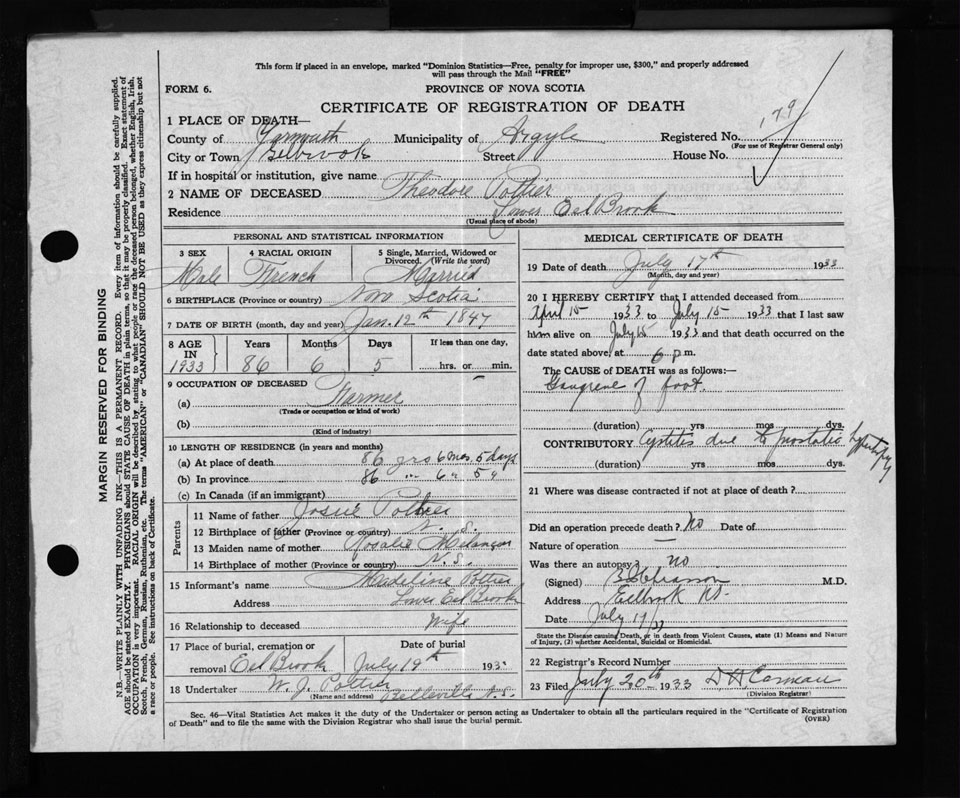 This form if placed in an envelope, marked "Dominion Statistics—Free, penalty for improper use, $300," and properly addressed
will pass through the Mail "FREE"
FORM 6.
PROVINCE OF NOVA SCOTIA
CERTIFICATE OF REGISTRATION OF DEATH
1 PLACE OF DEATH—
County of Yarmouth Municipality of Argyle Registered No. 179
(For use of Registrar General only)
City or Town Street House No.
If in hospital or institution, give name
2 NAME OF DECEASED Theodore Pottier
Residence Lower Eel Brook
(Usual place of abode)
PERSONAL AND STATISTICAL INFORMATION
3 SEX 4 RACIAL ORIGIN 5 Single, Married, Widowed or
Divorced. (Write the word)
Male French Married
6 BIRTHPLACE (Province or country) Nova Scotia
7 DATE OF BIRTH (month, day and year) Jan. 12th 1847
8 AGE IN 1933 Years Months Days If less than one day,
86 6 5 hrs. or min.
9 OCCUPATION OF DECEASED
(a) Farmer
(Trade or occupation or kind of work)
(b)
(Kind of industry)
10 LENGTH OF RESIDENCE (in years and months)
(a) At place of death 86 yrs 6 mos. 5 days
(b) In province 86 " 6 " 5 "
(c) In Canada (if an immigrant)
Parents
11 Name of father Josué Pottier
12 Birthplace of father (Province or country) N. S.
13 Maiden name of mother Rosalie Melançon
14 Birthplace of mother (Province or country) N. S.
15 Informant's name Madeline Pottier
Address Lower Eel Brook
16 Relationship to deceased Wife
17 Place of burial, cremation or Date of burial
removal Eel Brook July 19th 193
18 Undertaker W. J. Pottier N. S.
(Name and address)
MEDICAL CERTIFICATE OF DEATH
19 Date of death July 17th 1933
(Month, day and year)
20 I HEREBY CERTIFY that I attended deceased from
April 15 1933 to July 15 1933 that I last saw
him alive on July 15 1933 and that death occurred on the
date stated above, at 6 p.m.
The CAUSE OF DEATH was as follows:—
Gangrene of foot.
(duration) yrs mos dys.
CONTRIBUTORY Cystitis due to prostatic hypertrophy
(duration) yrs mos dys.
21 Where was disease contracted if not at place of death?
Did an operation precede death? No Date of
Nature of operation —
Was there an autopsy? no
(Signed) M.D.
Address Eelbrook N.S.
Date July 17/33
State the Disease causing Death, or in death from Violent Causes, state (1) Means and
Nature of Injury, (2) whether Accidental, Suicidal or Homicidal.
22 Registrar's Record Number
23 Filed July 20th 1933 Comeau
Division Registrar
Sec. 46—Vital Statistics Act makes it the duty of the Undertaker or person acting as Undertaker to obtain all the particulars required in the "Certificate of Registration
of Death" and to file the same with the Division Registrar who shall issue the burial permit.
(OVER)
MARGIN RESERVED FOR BINDING
N.B.—WRITE PLAINLY WITH UNFADING INK—THIS IS A PERMANENT RECORD. Every item of information should be carefully supplied.
AGE should be stated EXACTLY. PHYSICIANS should STATE CAUSE OF DEATH in plain terms, so that it may be properly classified. Exact statement of
OCCUPATION is very important. RACIAL ORIGIN will be described by stating to what people or race the deceased person belonged, whether English, Irish,
Scotch, French, German, Russian, Ruthenian, etc. The terms "AMERICAN" or "CANADIAN" SHOULD NOT BE USED as they express citizenship but not
a race or people. See instructions on back of Certificate.